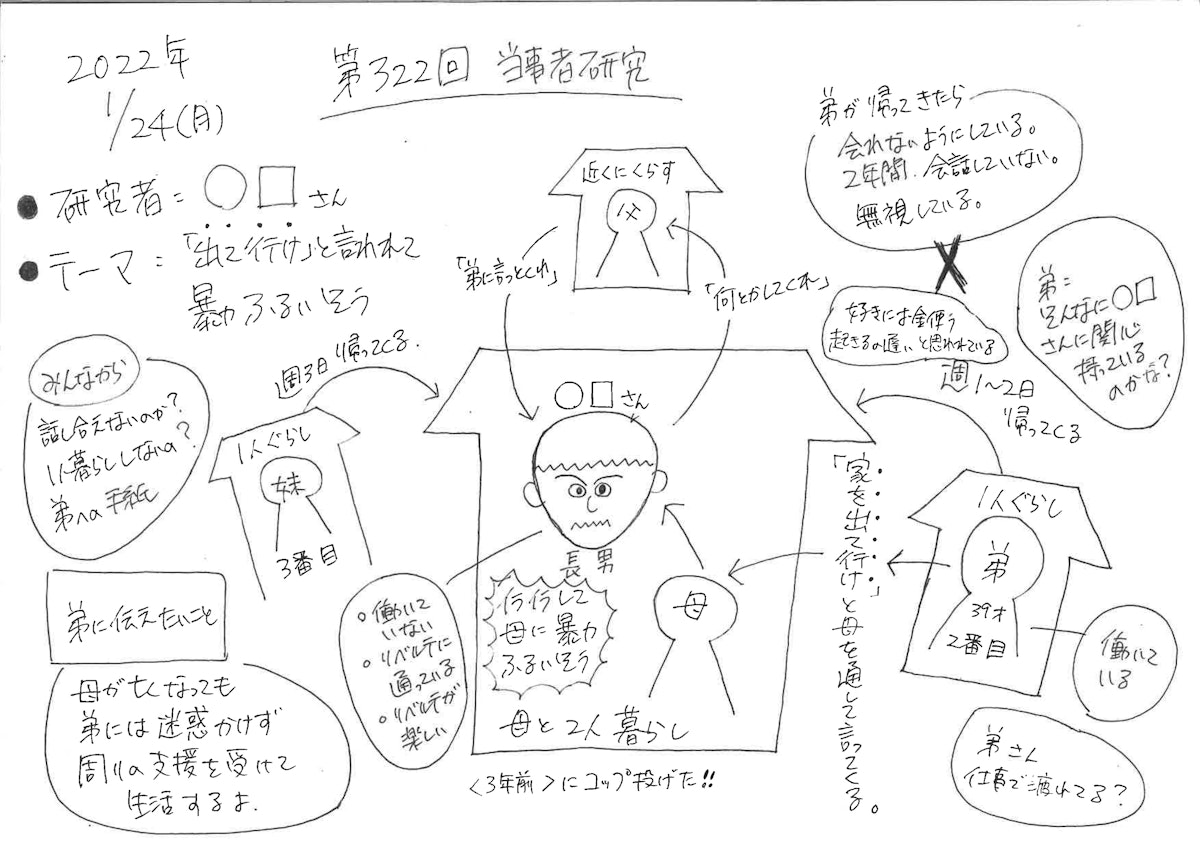 2022年
1/24(月)
第322回 当事者研究
● 研究者 = ○□さん
● テーマ = 「出て行け」と言われて
暴力ふるいそう
近くにくらす
父
「弟に言っとくれ」
「何とかしてくれ」
弟が帰ってきたら
会れないようにしている。
2年間、会話していない。
無視している。
好きにお金使う
起きるの遅いと思われている
弟=
そんなに○□
さんに関心
持っている
のかな?
週1〜2日
帰ってくる
みんなから
話し合えないのか?
1人暮らししないの?
弟への手紙
週3日帰ってくる.
1人ぐらし
妹
3番目
○□さん
長男
イライラして
母に暴力
ふるいそう
母
母と2人暮らし
<3年前>にコップ投げた!!
○働いて
いない
○リベルテに
通っている
○リベルテが
楽しい
「家を出て行け」と母を通して言ってくる。
1人ぐらし
弟
39才
2番目
働いて
いる
弟さん
仕事で疲れてる?
弟に伝えたいこと
母が亡くなっても
弟には迷惑かけず
周りの支援を受けて
生活するよ.